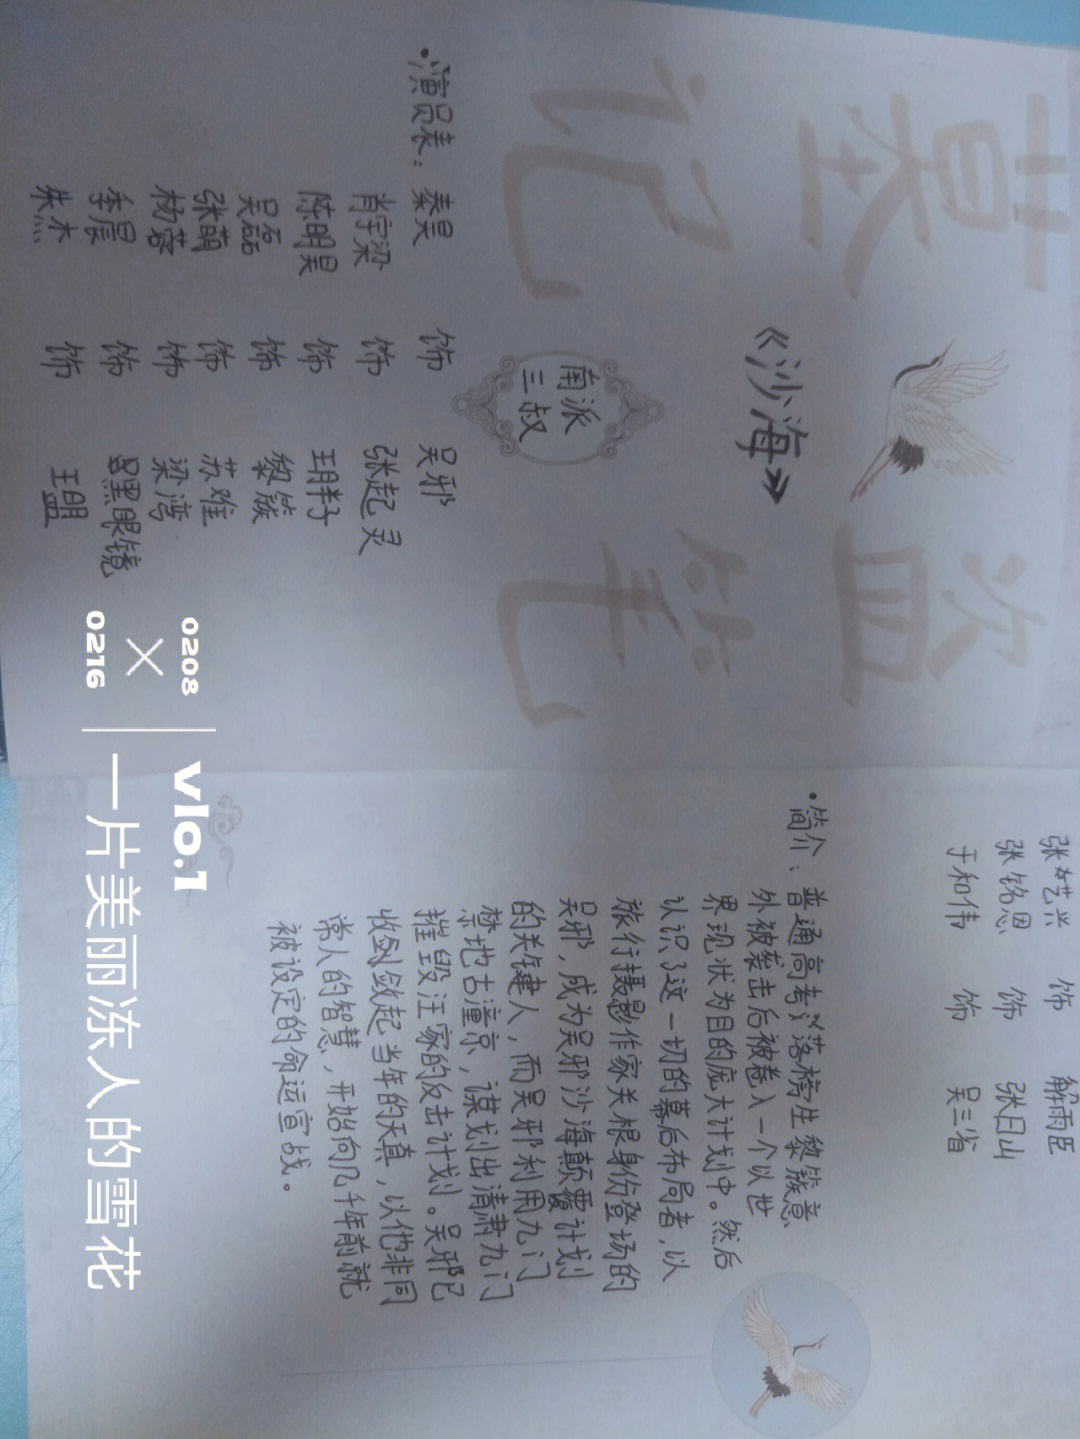 盗墓
笔记
《沙海》
南派
三叔
•演员表：秦昊 饰 吴邪
肖宇梁 饰 张起灵
陈明昊 饰 王胖子
吴磊 饰 黎簇
张萌 饰 苏难
杨蓉 饰 梁湾
季晨 饰 黑眼镜
朱杰 饰 王盟
张艺兴 饰 解雨臣
张铭恩 饰 张日山
于和伟 饰 吴三省
•简介：普通高考落榜生黎簇意
外被袭击后被卷入一个以世
界现状为目的庞大计划中。然后
认识了这一切的幕后布局者，以
旅行摄影作家关根身份登场的
吴邪，成为吴邪沙海颠覆计划
的关键人，而吴邪利用九门
禁地古潼京，谋划出清肃九门
摧毁汪家的反击计划。吴邪已
收敛起当年的天真，以他非同
常人的智慧，开始向几千年前就
被设定的命运宣战。
0208
×
0216
vlo.1
一片美丽冻人的雪花